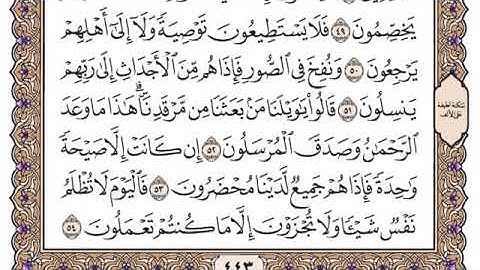 يَخِصِّمُونَ ٤٩ فَلَا يَسْتَطِيعُونَ تَوْصِيَةً وَلَا إِلَىٰ أَهْلِهِمْ
يَرْجِعُونَ ٥٠ وَنُفِخَ فِي الصُّورِ فَإِذَا هُم مِّنَ الْأَجْدَاثِ إِلَىٰ رَبِّهِمْ
يَنسِلُونَ ٥١ قَالُوا يَٰوَيْلَنَا مَنۢ بَعَثَنَا مِن مَّرْقَدِنَا ۜ ۗ هَٰذَا مَا وَعَدَ
الرَّحْمَٰنُ وَصَدَقَ الْمُرْسَلُونَ ٥٢ إِن كَانَتْ إِلَّا صَيْحَةً
وَٰحِدَةً فَإِذَا هُمْ جَمِيعٌ لَّدَيْنَا مُحْضَرُونَ ٥٣ فَالْيَوْمَ لَا تُظْلَمُ
نَفْسٌ شَيْـًٔا وَلَا تُجْزَوْنَ إِلَّا مَا كُنتُمْ تَعْمَلُونَ ٥٤
سكتة لطيفة
على الألف
٤٤٣